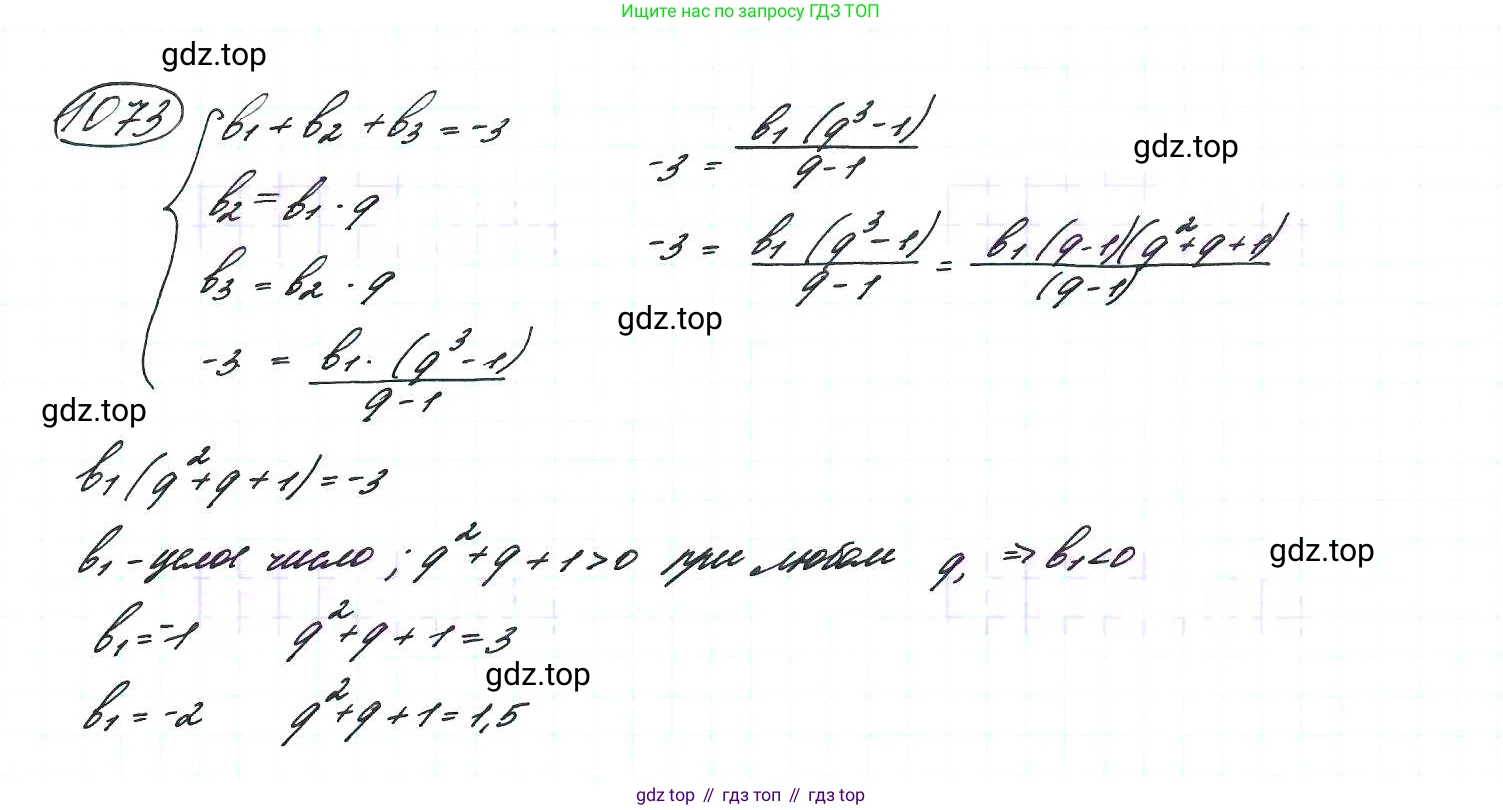 Ищите нас по запросу ГДЗ ТОП
gdz.top
1073
b₁ + b₂ + b₃ = -3
b₂ = b₁ · q
b₃ = b₂ · q
-3 = b₁ · (q³ - 1) / q - 1
-3 = b₁ (q³ - 1) / q - 1
gdz.top
-3 = b₁ (q³ - 1) / q - 1 = b₁ (q - 1)(q² + q + 1) / (q - 1)
gdz.top
gdz.top
b₁ (q² + q + 1) = -3
b₁ - целое число ; q² + q + 1 > 0 при любом q, ⇒ b₁ < 0
gdz.top
b₁ = -1 q² + q + 1 = 3
gdz.top
b₁ = -2 q² + q + 1 = 1,5
gdz top // гдз топ // гдз top